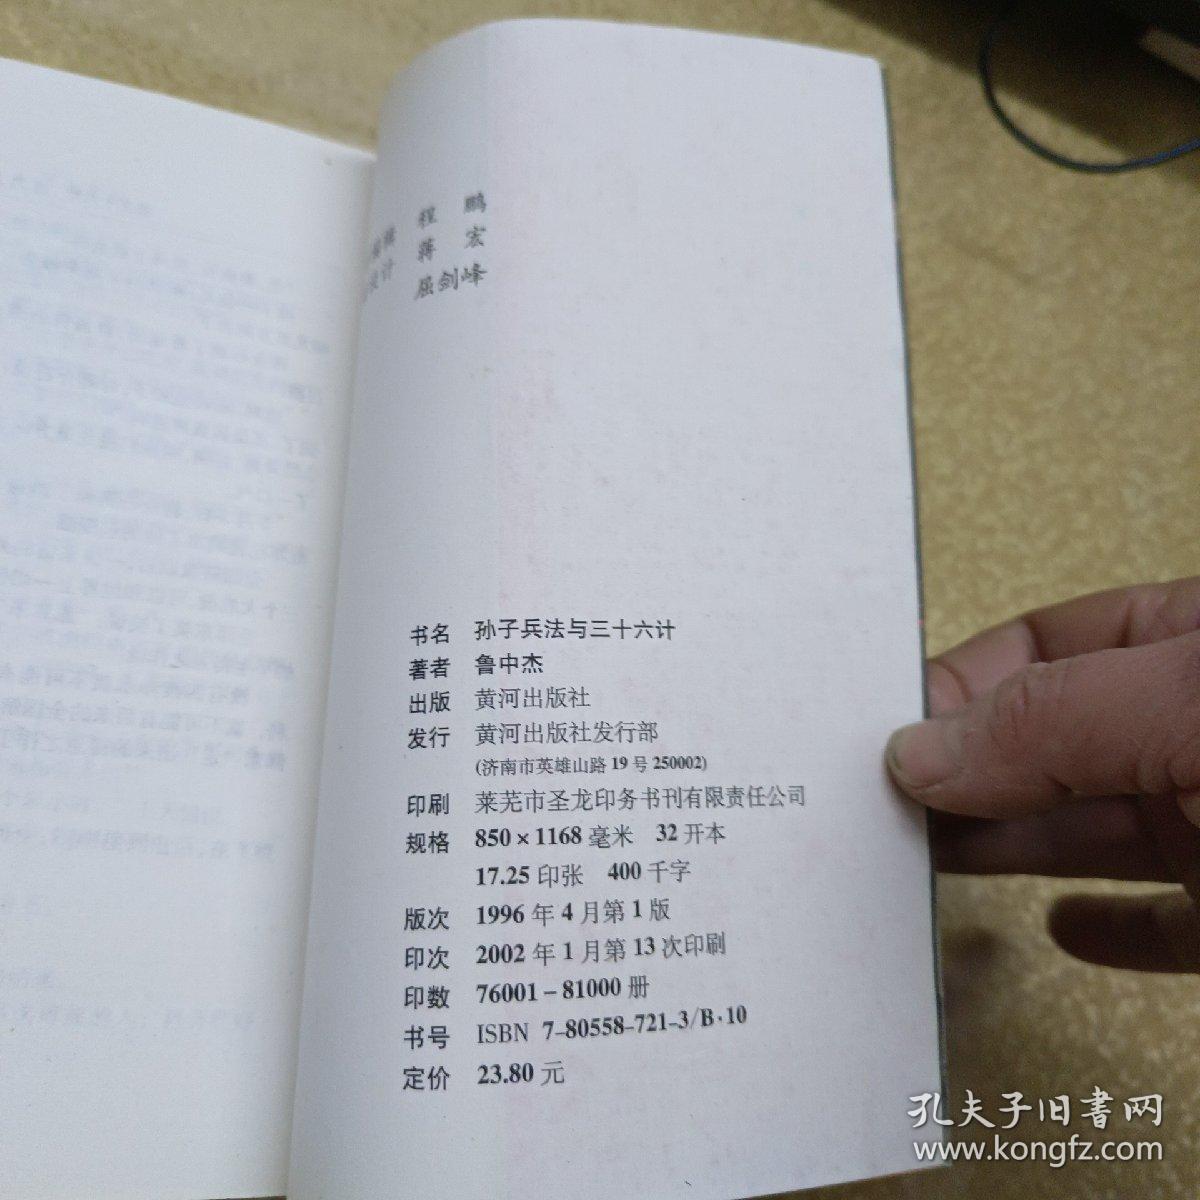 程 鹏
蒋 宏
计 屈剑峰
书名 孙子兵法与三十六计
著者 鲁中杰
出版 黄河出版社
发行 黄河出版社发行部
(济南市英雄山路19号250002)
印刷 莱芜市圣龙印务书刊有限责任公司
规格 850×1168毫米 32开本
17.25印张 400千字
版次 1996年4月第1版
印次 2002年1月第13次印刷
印数 76001-81000册
书号 ISBN 7-80558-721-3/B·10
定价 23.80元
孔夫子旧书网
www.kongfz.com